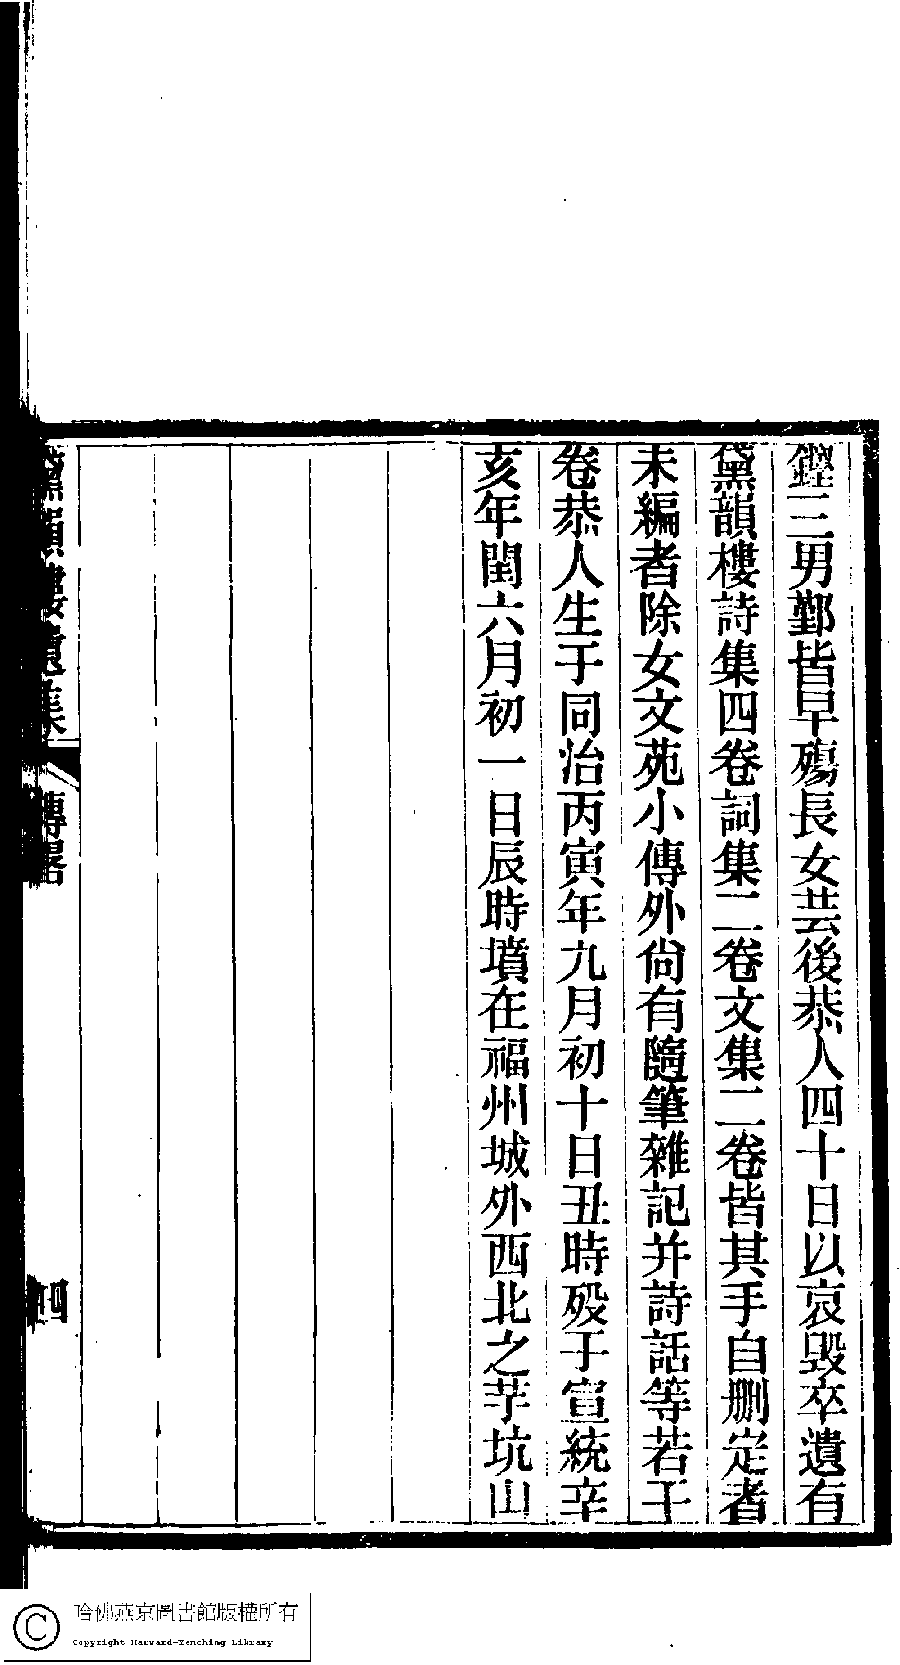 鏗三男鄞皆早殤長女芸後恭人四十日以哀毀卒遺有
黛韻樓詩集四卷詞集二卷文集二卷皆其手自刪定者
未編者除女文苑小傳外尚有隨筆雜記并詩話等若干
卷恭人生于同治丙寅年九月初十日丑時歿于宣統辛
亥年閏六月初一日辰時墳在福州城外西北之芋坑山
黛韻樓遺集
傳畧
四
哈佛燕京圖書館版權所有
Copyright Harvard-Yenching Library